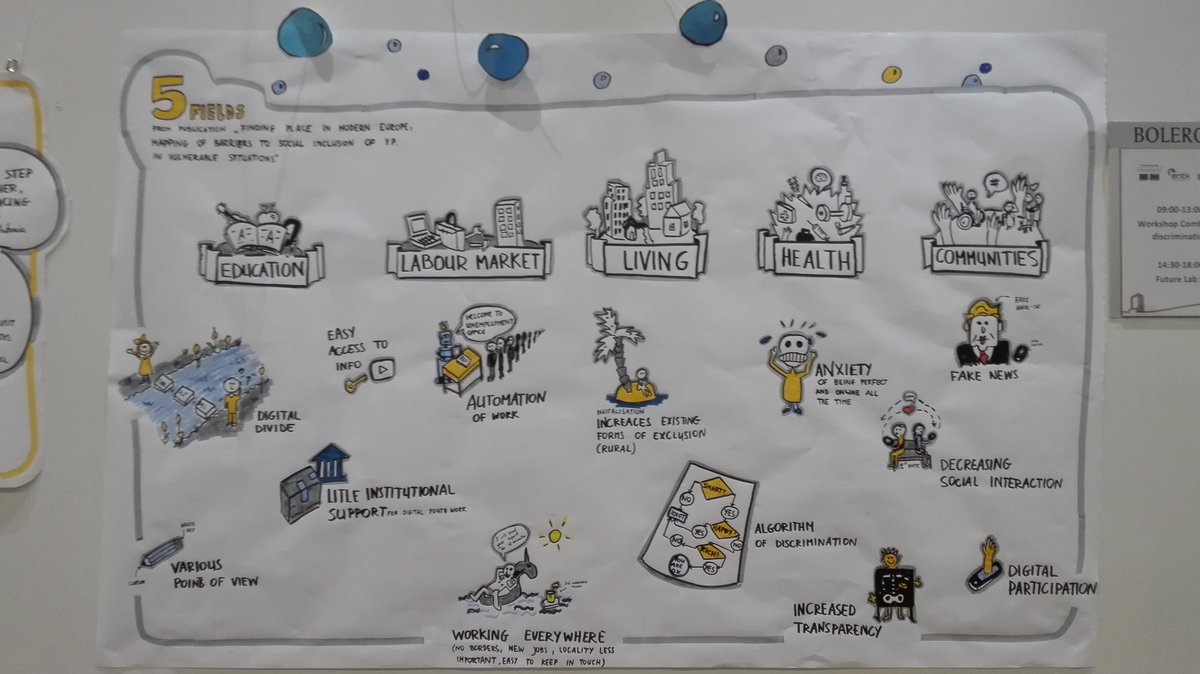 5 FIELDS
FROM PUBLICATION „FINDING PLACE IN MODERN EUROPE:
MAPPING OF BARRIERS TO SOCIAL INCLUSION OF Y.P.
IN VULNERABLE SITUATIONS"
EDUCATION
LABOUR MARKET
LIVING
HEALTH
COMMUNITIES
A-
A-
#
EASY
ACCESS TO
INFO
WELCOME TO
UNEMPLOYMENT
OFFICE
AUTOMATION
OF WORK
DIGITALISATION
INCREACES EXISTING
FORMS OF EXCLUSION
(RURAL)
ANXIETY
OF BEING PERFECT
AND ONLINE ALL
THE TIME
FAKE NEWS
DIGITAL
DIVIDE
LITLE INSTITUTIONAL
SUPPORT FOR DIGITAL YOUTH WORK
1st DATE
DECREASING
SOCIAL INTERACTION
SMART?
NO
YES
IDIOT
YES
HAPPY
NO
NO
RICH?
YOU ARE OK
YES
ALGORITHM
OF DISCRIMINATION
VARIOUS
POINTS OF VIEW
WORKING EVERYWHERE
(NO BORDERS, NEW JOBS, LOCALITY LESS
IMPORTANT, EASY TO KEEP IN TOUCH)
INCREASED
TRANSPARENCY
DIGITAL
PARTICIPATION
STEP
BOLERO
09:00-13:00
Workshop
14:30-18:00
Future Lab